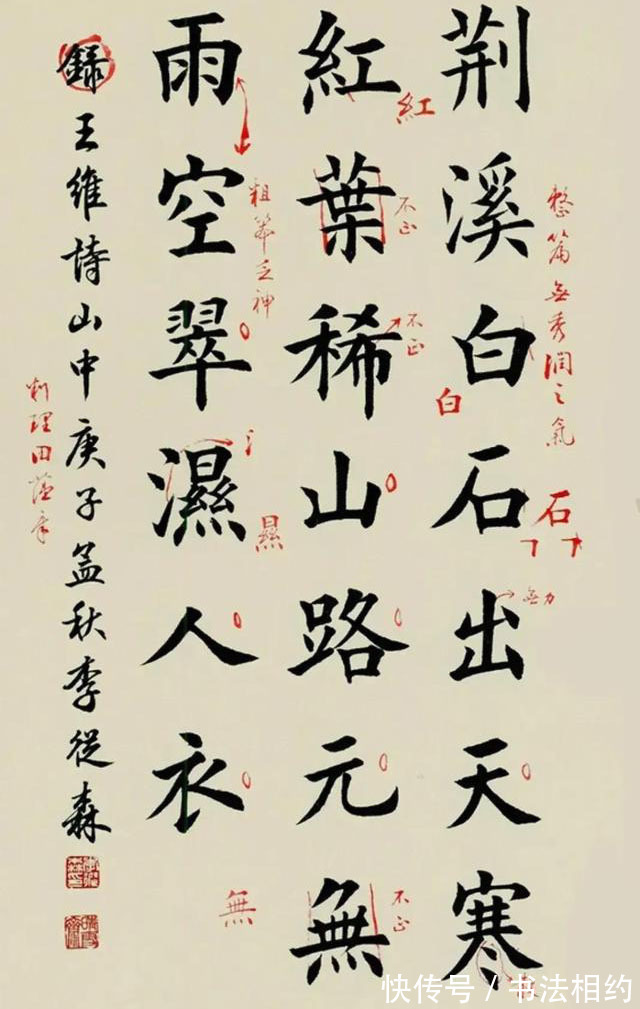 荆溪白石出天寒
紅葉稀山路元無
雨空翠濕人衣
録王維詩山中庚子孟秋李從森
整篇無秀潤之氣
白
石
無力
紅
不正
不正
不正
粗笨乏神
㬎
無
快传号 / 书法相约